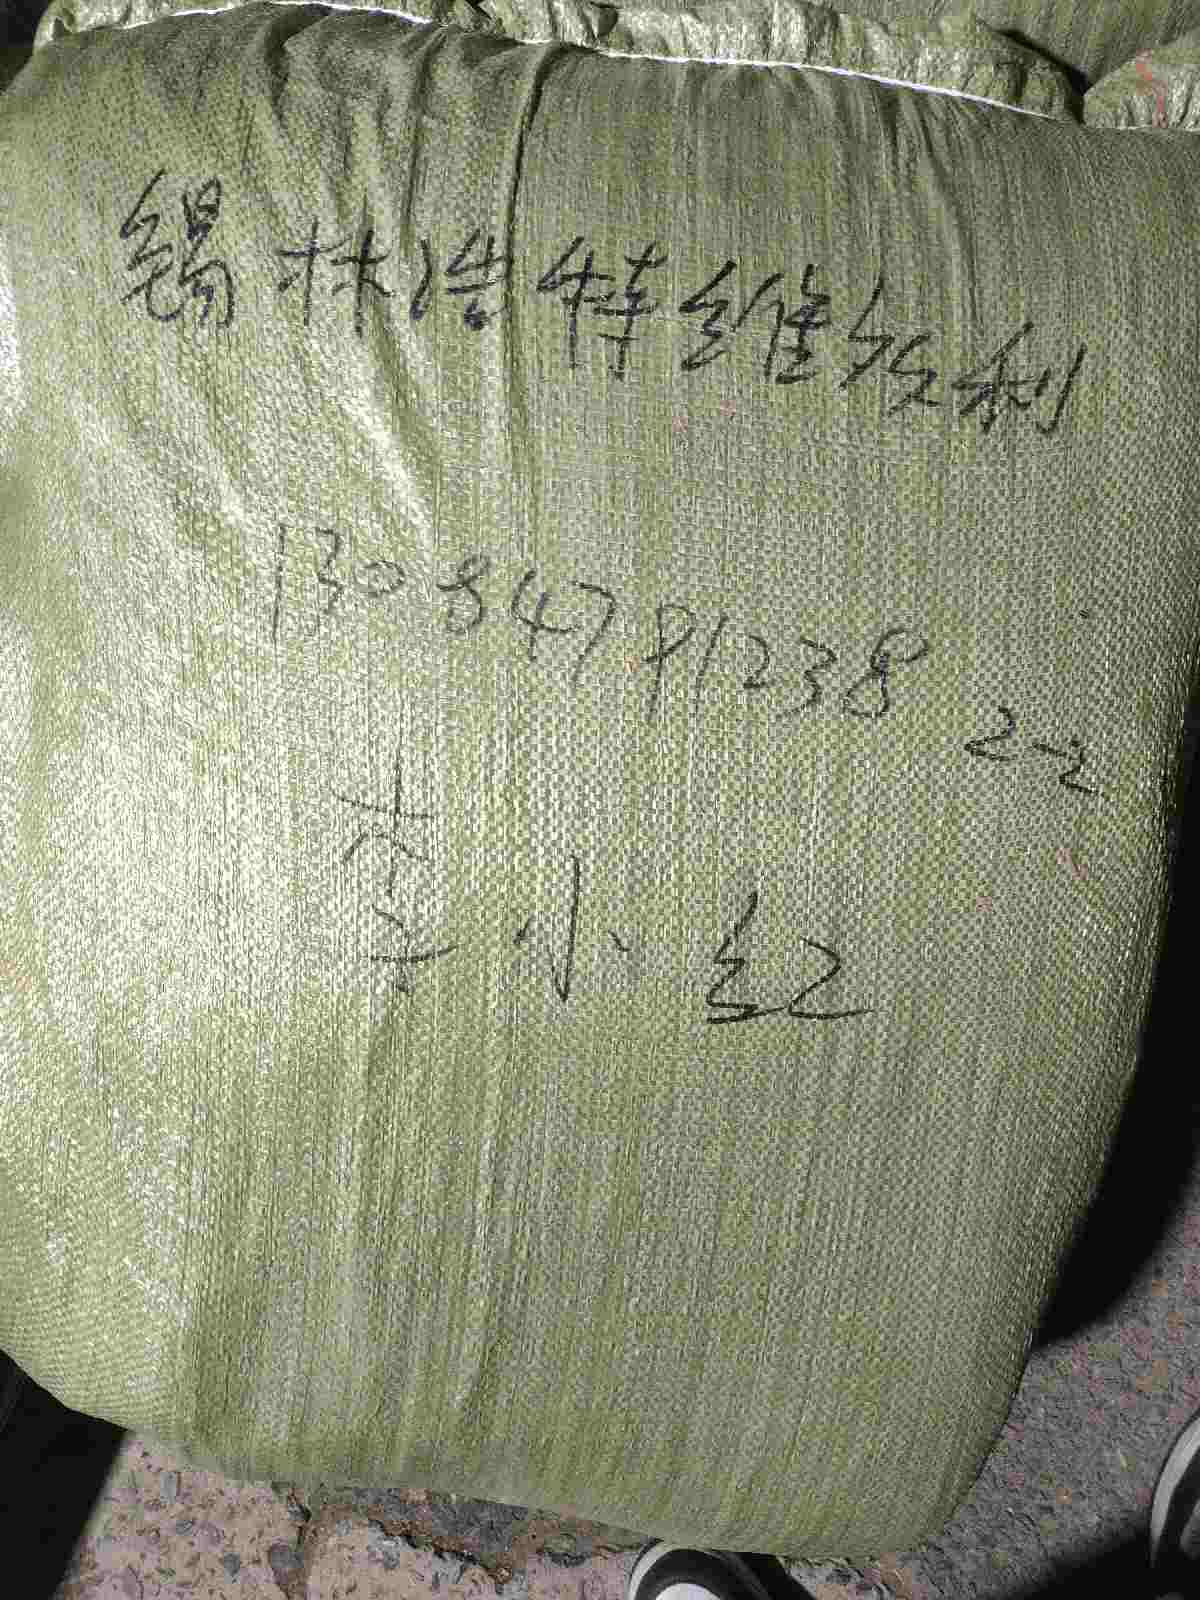 锡林浩特维多利
13084791238
2-2
李小红